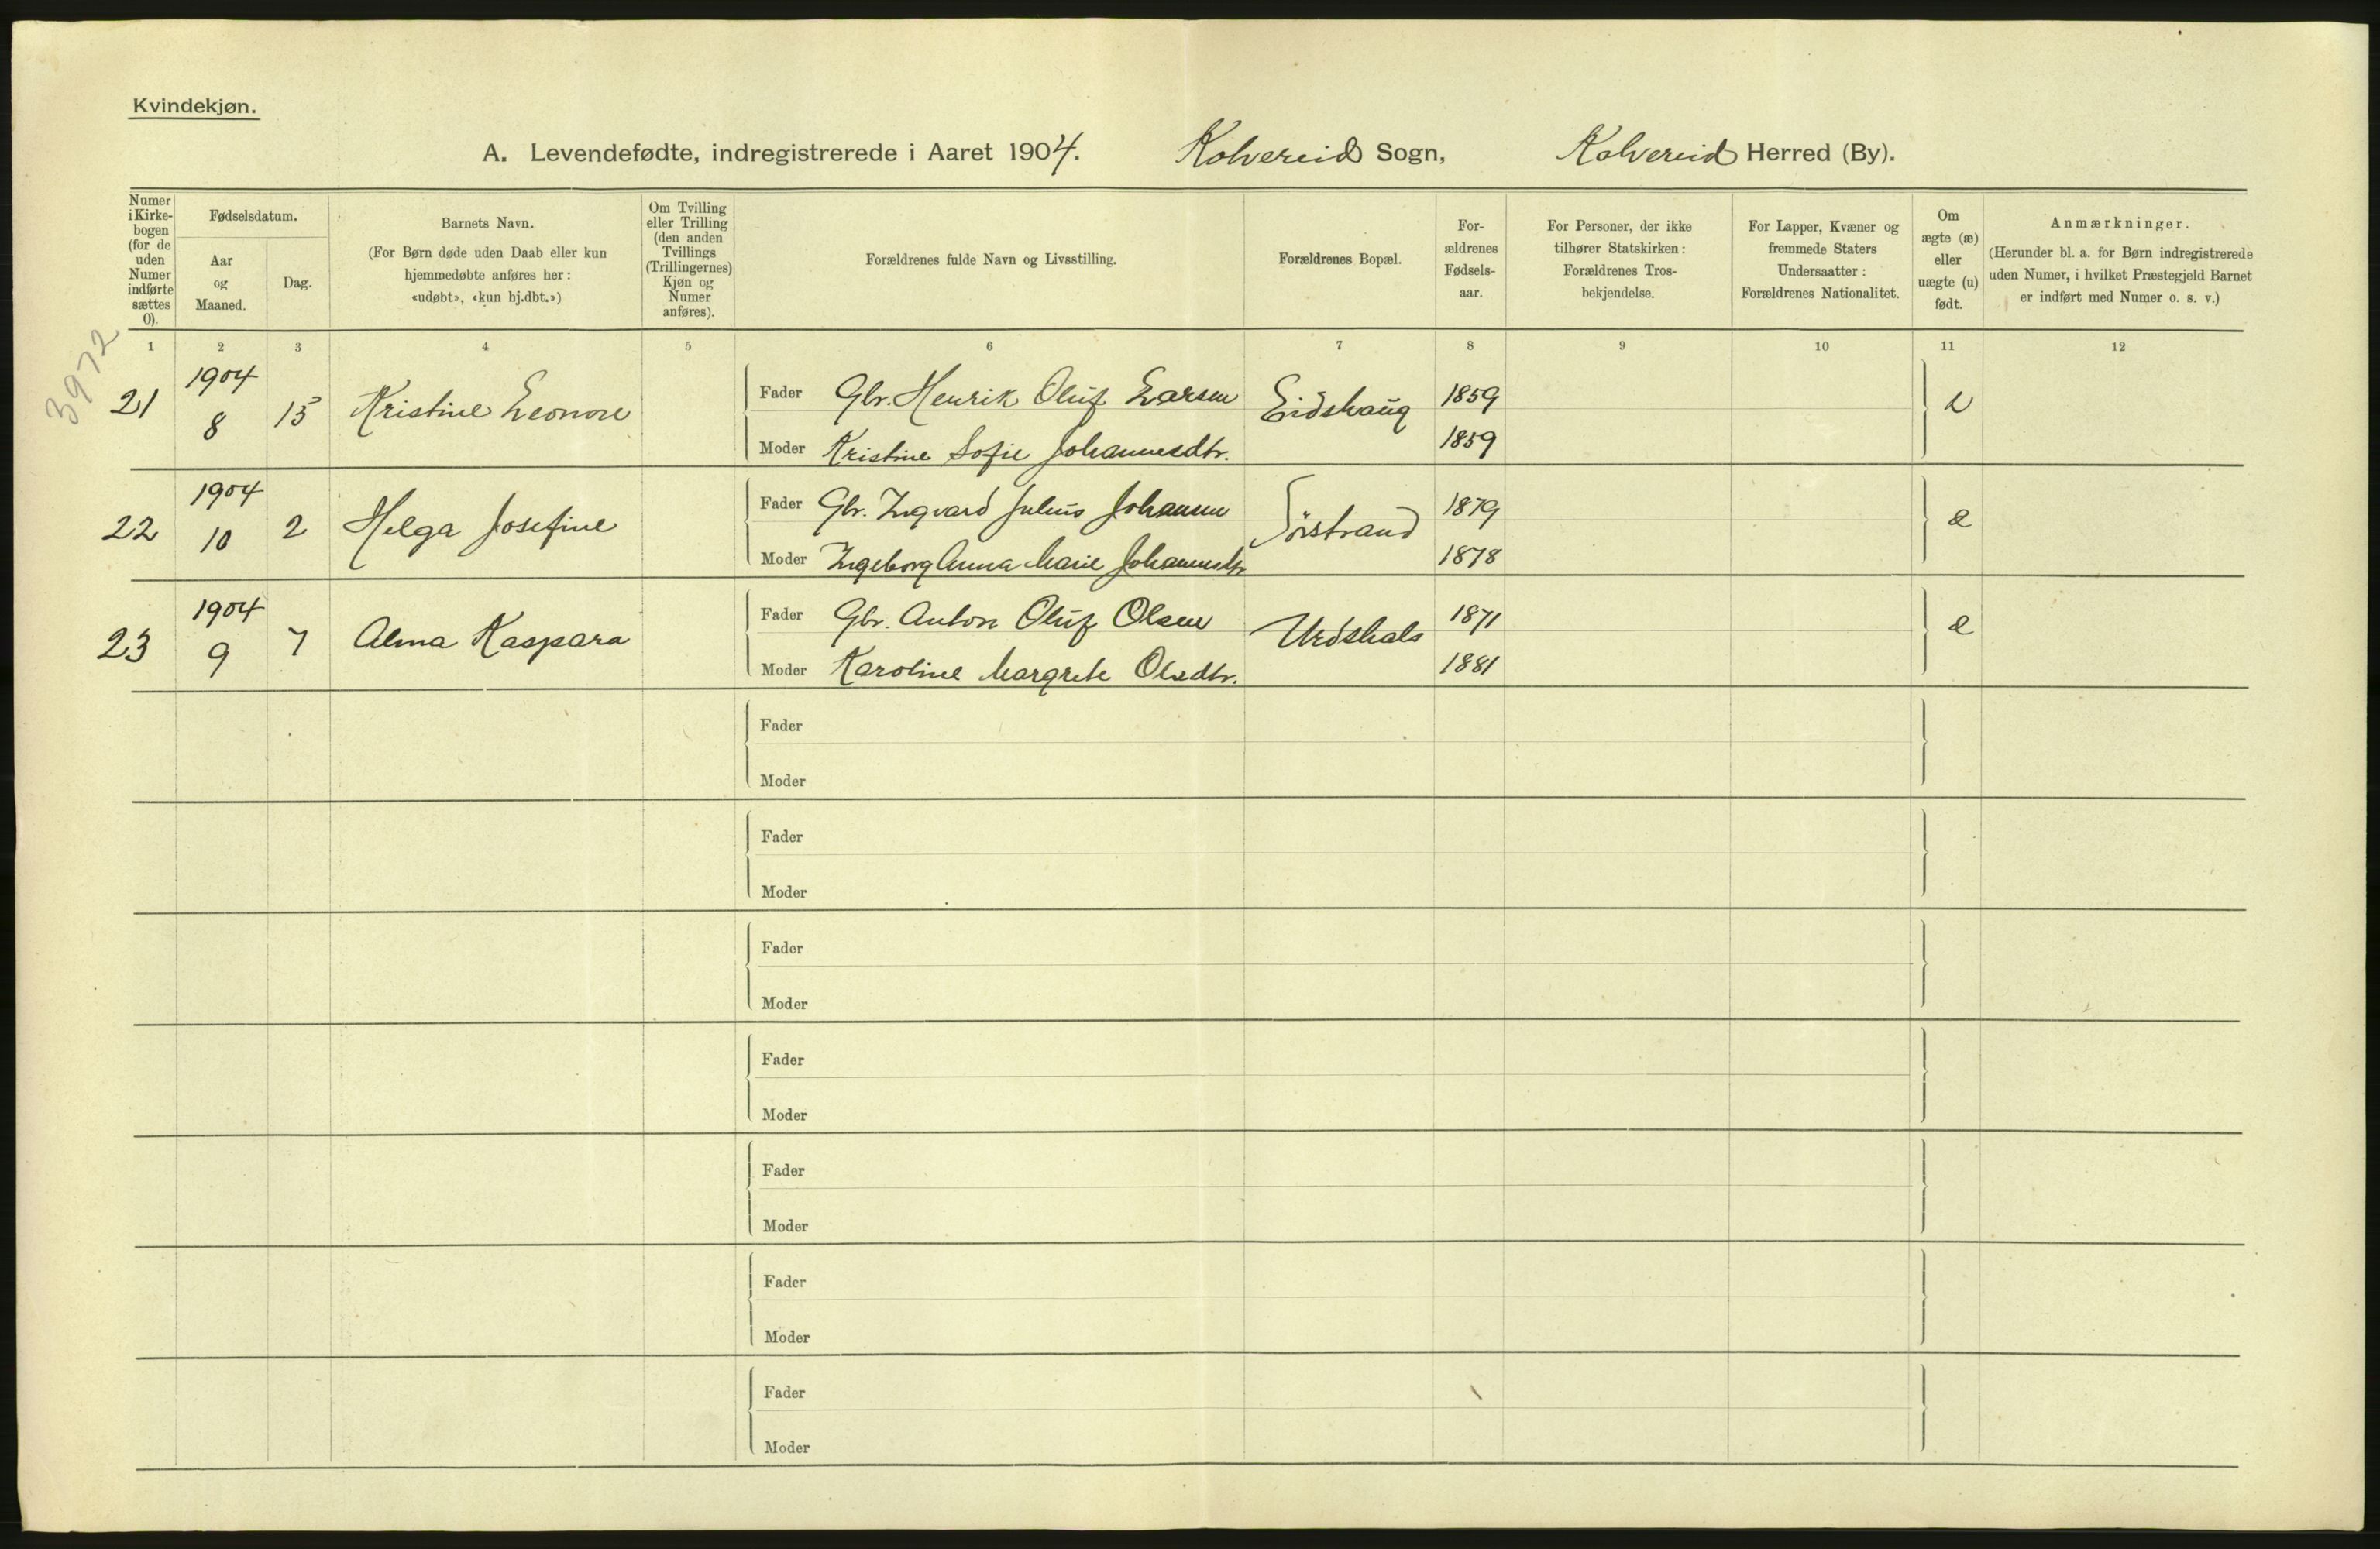 Kvindekjøn.
A. Levendefødte, indregistrerede i Aaret 1904. Kolvereid Sogn, Kolvereid Herred (By).
Numer i Kirkebogen (for de uden Numer indførte sættes 0).
Fødselsdatum.
Aar og Maaned.
Dag.
Barnets Navn.
(For Børn døde uden Daab eller kun hjemmedøbte anføres her: «udøbt», «kun hj.dbt.»)
Om Tvilling eller Trilling (den anden Tvillings (Trillingernes) Kjøn og Numer anføres).
Forældrenes fulde Navn og Livsstilling.
Forældrenes Bopæl.
For-ældrenes Fødsels-aar.
For Personer, der ikke tilhører Statskirken: Forældrenes Tros-bekjendelse.
For Lapper, Kvæner og fremmede Staters Undersaatter: Forældrenes Nationalitet.
Om ægte (æ) eller uægte (u) født.
Anmærkninger.
(Herunder bl. a. for Børn indregistrerede uden Numer, i hvilket Præstegjeld Barnet er indført med Numer o. s. v.)
1 2 3 4 5 6 7 8 9 10 11 12
3972
21 1904 8 15 Kristine Leonore Fader Gbr. Henrik Oluf Larsen Eidshaug 1859
Moder Kristine Sofie Johannesdtr. 1859
22 1904 10 2 Helga Josefine Fader Gbr. Ingvard Julius Johansen Sörstrand 1879 æ
Moder Ingeborg Anna Marie Johannesdtr 1878
23 1904 9 7 Alma Kaspara Fader Gbr. Anton Oluf Olsen Urdshals 1871 æ
Moder Karoline Margrete Olsdtr. 1881
Fader
Moder
Fader
Moder
Fader
Moder
Fader
Moder
Fader
Moder
Fader
Moder
Fader
Moder